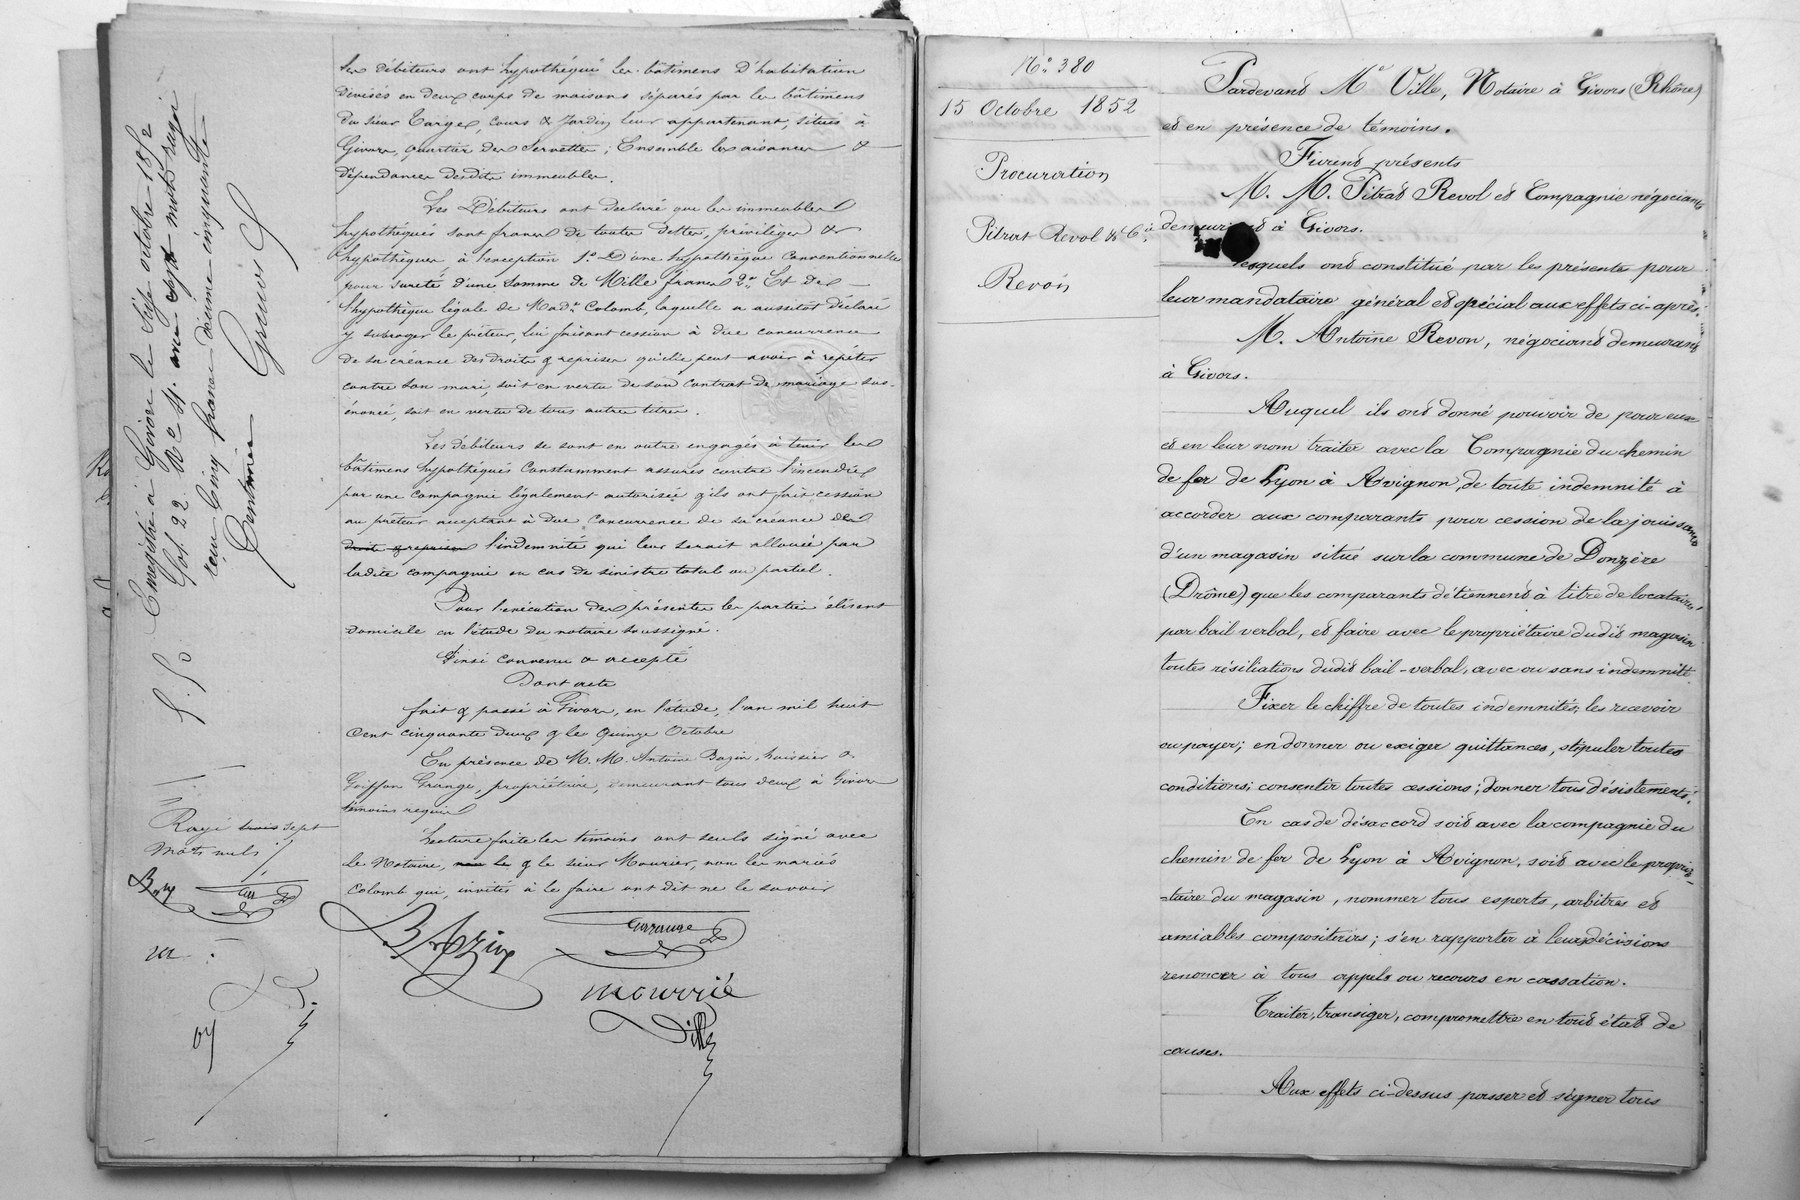 les débiteurs ont hypothéqué les bâtimens d'habitation
divisés en deux corps de maisons séparés par les bâtimens
du sieur Targe, cours & Jardin leur appartenant, situés à
Givors, quartier des Servettes ; Ensemble les aisances &
dépendances desdits immeubles.
Les Débiteurs ont déclaré que les immeubles
hypothéqués sont francs de toutes dettes, privilèges &
hypothèques à l'exception 1º D'une hypothèque Conventionnelle
pour sureté d'une somme de Mille francs 2º Et de
l'hypothèque légale de Made Colomb, laquelle a aussitôt déclaré
y subroger le prêteur, lui faisant cession à due concurrence
de sa créance des droits & reprises qu'elle peut avoir à répéter
contre son mari, soit en vertu de son Contrat de mariage sus-
énoncé, soit en vertu de tous autres titres.
Les débiteurs se sont en outre engagés à tenir les
bâtimens hypothéqués Constamment assurés contre l'incendie
par une Compagnie légalement autorisée & ils ont fait cession
au prêteur acceptant à Due Concurrence de sa créance des
droits & reprises l'indemnité qui leur serait allouée par
ladite compagnie en cas de sinistre total ou partiel.
Pour l'exécution des présentes les parties élisent
domicile en l'étude du notaire soussigné.
Ainsi convenu & accepté
Dont acte
fait & passé à Givors, en l'étude, l'an mil huit
Cent cinquante deux & le Quinze Octobre
En présence de M. M. Antoine Bazin, huissier &
Goiffon Grange, propriétaire, demeurant tous deux à Givors
témoins requis
Lecture faite les témoins ont seuls signé avec
le Notaire, non le & le sieur Mourier, non les mariés
Colomb qui, invités à le faire ont dit ne le savoir
BAZin
mourié
Ville
Enregistré à Givors le Sept octobre 1852
fol. 22
reçu Cinq francs décime cinquante
Centimes
Rayé trois sept
mots nuls
Nº 380
15 Octobre 1852
Procuration
Pitrat Revol & Cie à
Revon
Pardevant Me Ville, Notaire à Givors (Rhône)
et en présence de témoins.
Furent présents
M. M. Pitrat Revol et Compagnie négociants
demeurant à Givors.
Lesquels ont constitué par les présentes pour
leur mandataire général et spécial aux effets ci-après.
M. Antoine Revon, négociant demeurant
à Givors.
Auquel ils ont donné pouvoir de pour eux
et en leur nom traiter avec la Compagnie du chemin
de fer de Lyon à Avignon, de toute indemnité à
accorder aux comparants pour cession de la jouissance
d'un magasin situé sur la commune de Donzère
(Drôme) que les comparants détiennent à titre de locataires
par bail verbal, et faire avec le propriétaire dudit magasin
toutes résiliations dudit bail-verbal, avec ou sans indemnité.
Fixer le chiffre de toutes indemnités, les recevoir
ou payer; en donner ou exiger quittances, stipuler toutes
conditions; consentir toutes cessions; donner tous désistements.
En cas de désaccord soit avec la compagnie du
chemin de fer de Lyon à Avignon, soit avec le proprié-
-taire du magasin, nommer tous experts, arbitres et
amiables compositeurs; s'en rapporter à leurs décisions
renoncer à tous appels ou recours en cassation.
Traiter, transiger, compromettre en tout état de
causes.
Aux effets ci-dessus passer et signer tous